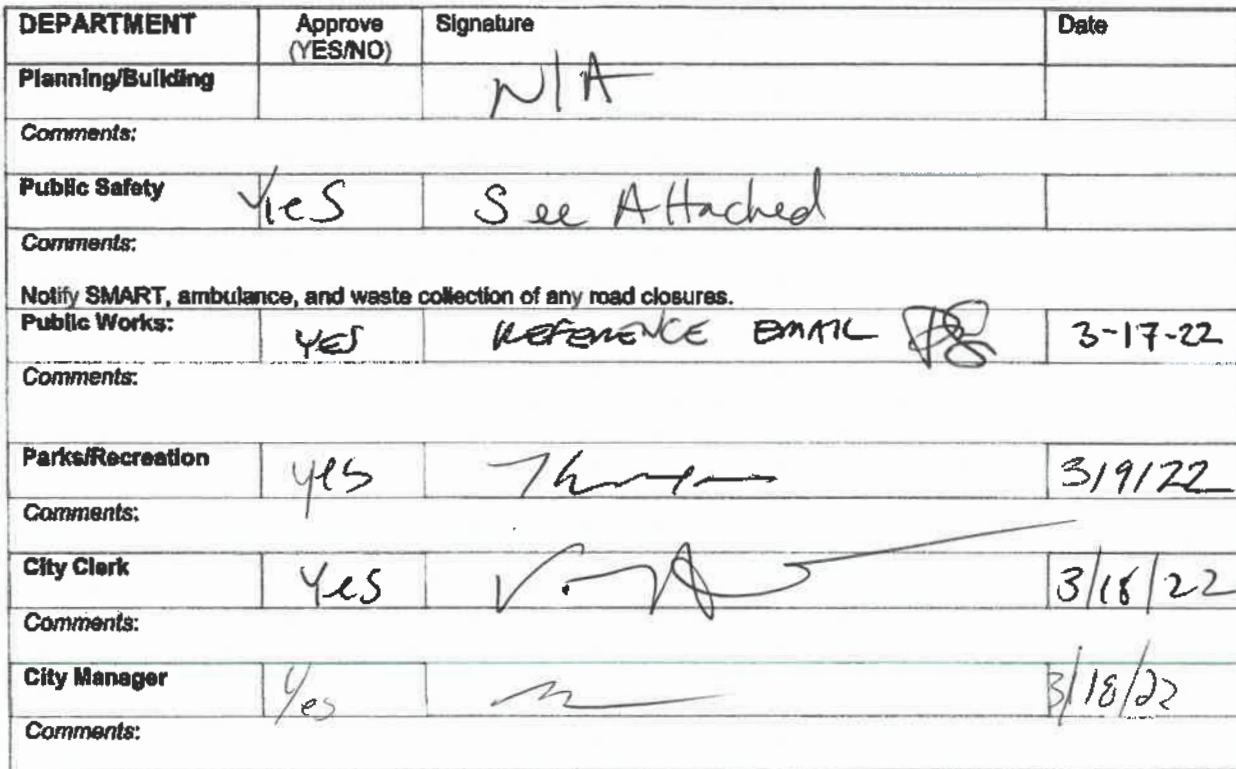 DEPARTMENT Approve (YES/NO) Signature Date
Planning/Building N/A
Comments:
Public Safety Yes See Attached
Comments:
Notify SMART, ambulance, and waste collection of any road closures.
Public Works: YES REFERENCE EMAIL 3-17-22
Comments:
Parks/Recreation yes 3/9/22
Comments:
City Clerk Yes 3/18/22
Comments:
City Manager Yes 3/18/22
Comments: